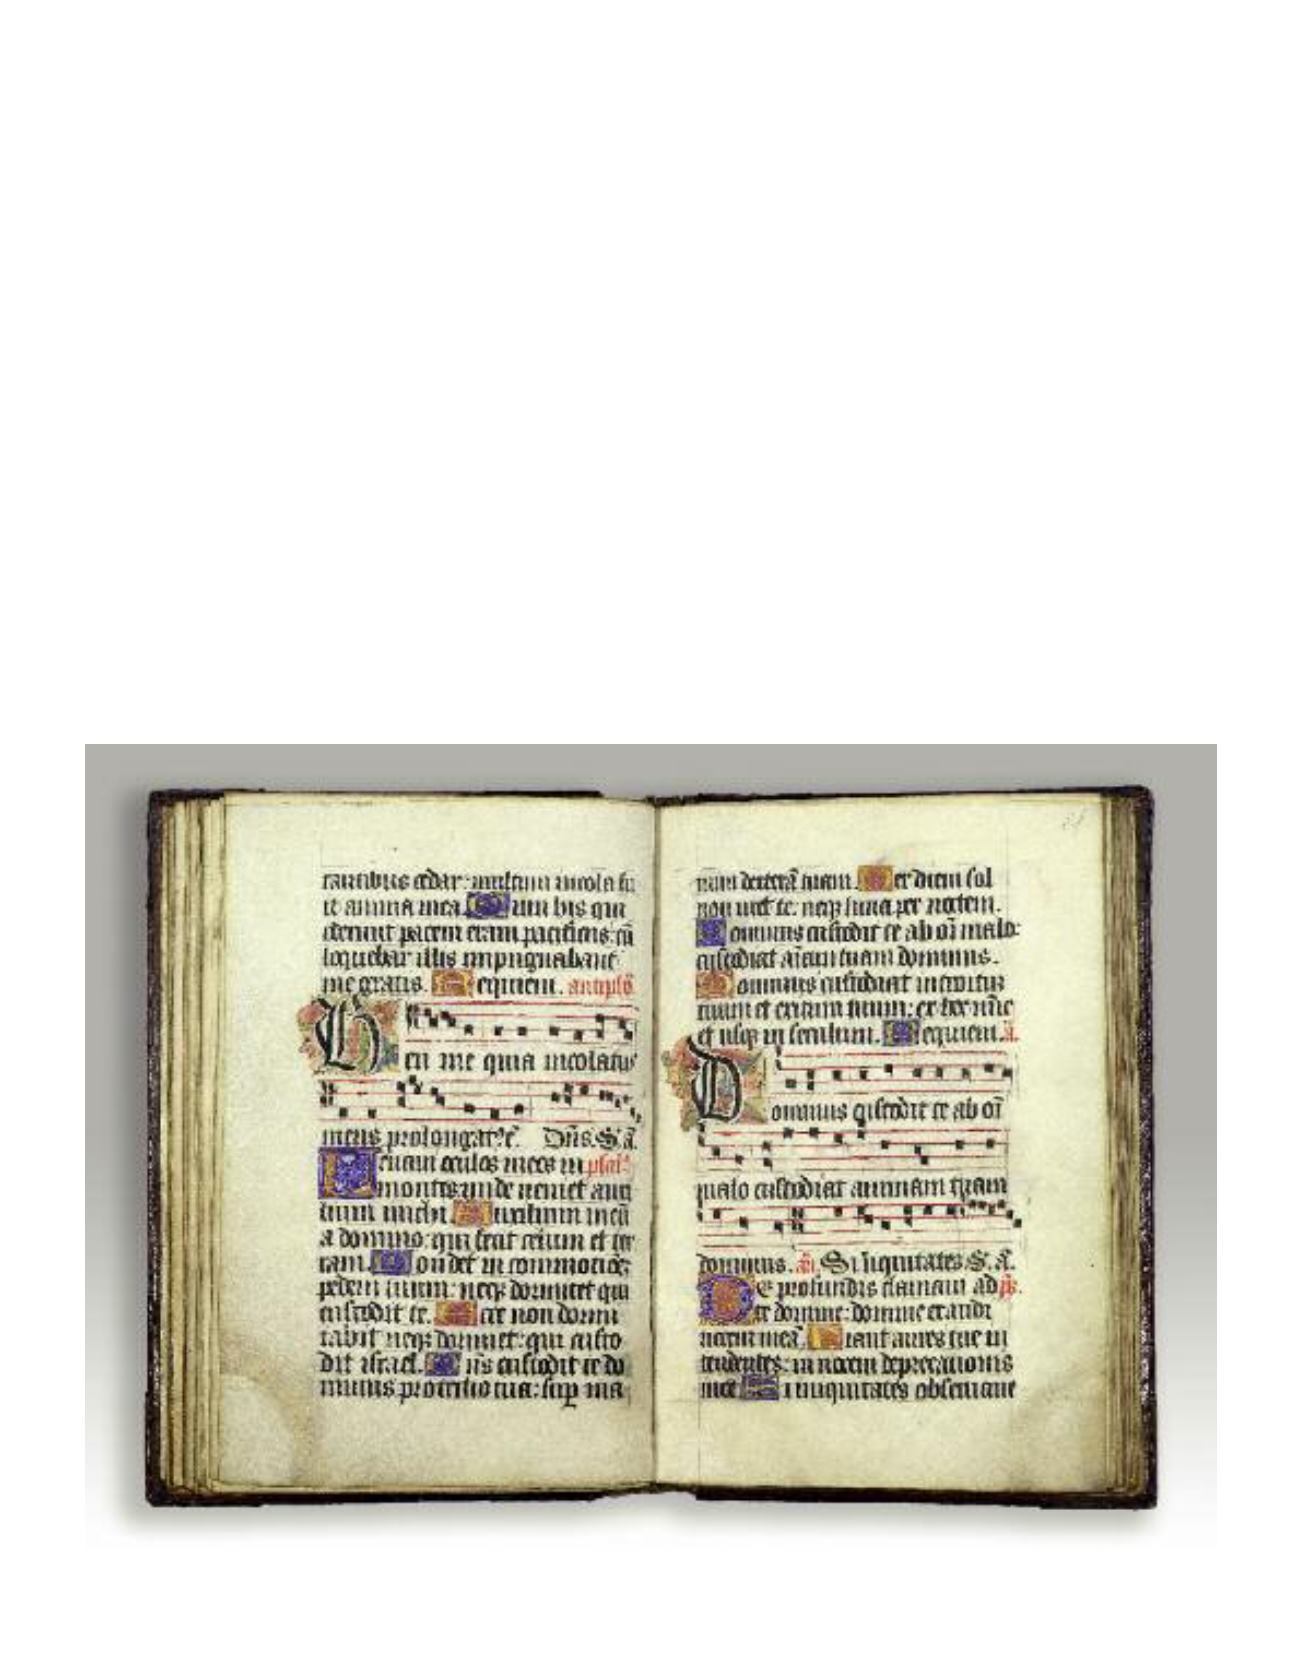 tantibus cedar: multum incola fu
it anima mea. Cum his qui
oderunt pacem eram pacificus: cū
loquebar illis impugnabant
me gratis. Requiem. antiphō
Heu me quia incolatus
meus prolongat9 ē. Dn̄s. S. ā.
Leuaui oculos meos in psal9
montes unde ueniet auxi
lium michi. Auxilium meū
a domino: qui fecit celum et ter
ram. Non det in commotionē
pedem tuum: neqꝫ dormitet qui
custodit te. Ecce non dormi
tabit neqꝫ dormiet: qui custo
dit israel. Dn̄s custodit te do
minus protectio tua: sup ma
num dexterā tuam. Per diem sol
non uret te: neqꝫ luna per noctem.
Dominus custodit te ab oī malo:
custodiat aīam tuam dominus.
Dominus custodiat introitum
tuum et exitum tuum: ex hoc nūc
et usqꝫ in seculum. Requiem. ā.
Dominus custodit te ab oī
malo custodiat animam tuam
dominus. ā. Si iniquitates. S. ā.
De profundis clamaui ad ps.
te domine: domine exaudi
uocem meā. Fiant aures tue in
tendentes: in uocem deprecationis
mee. Si iniquitates obseruaue